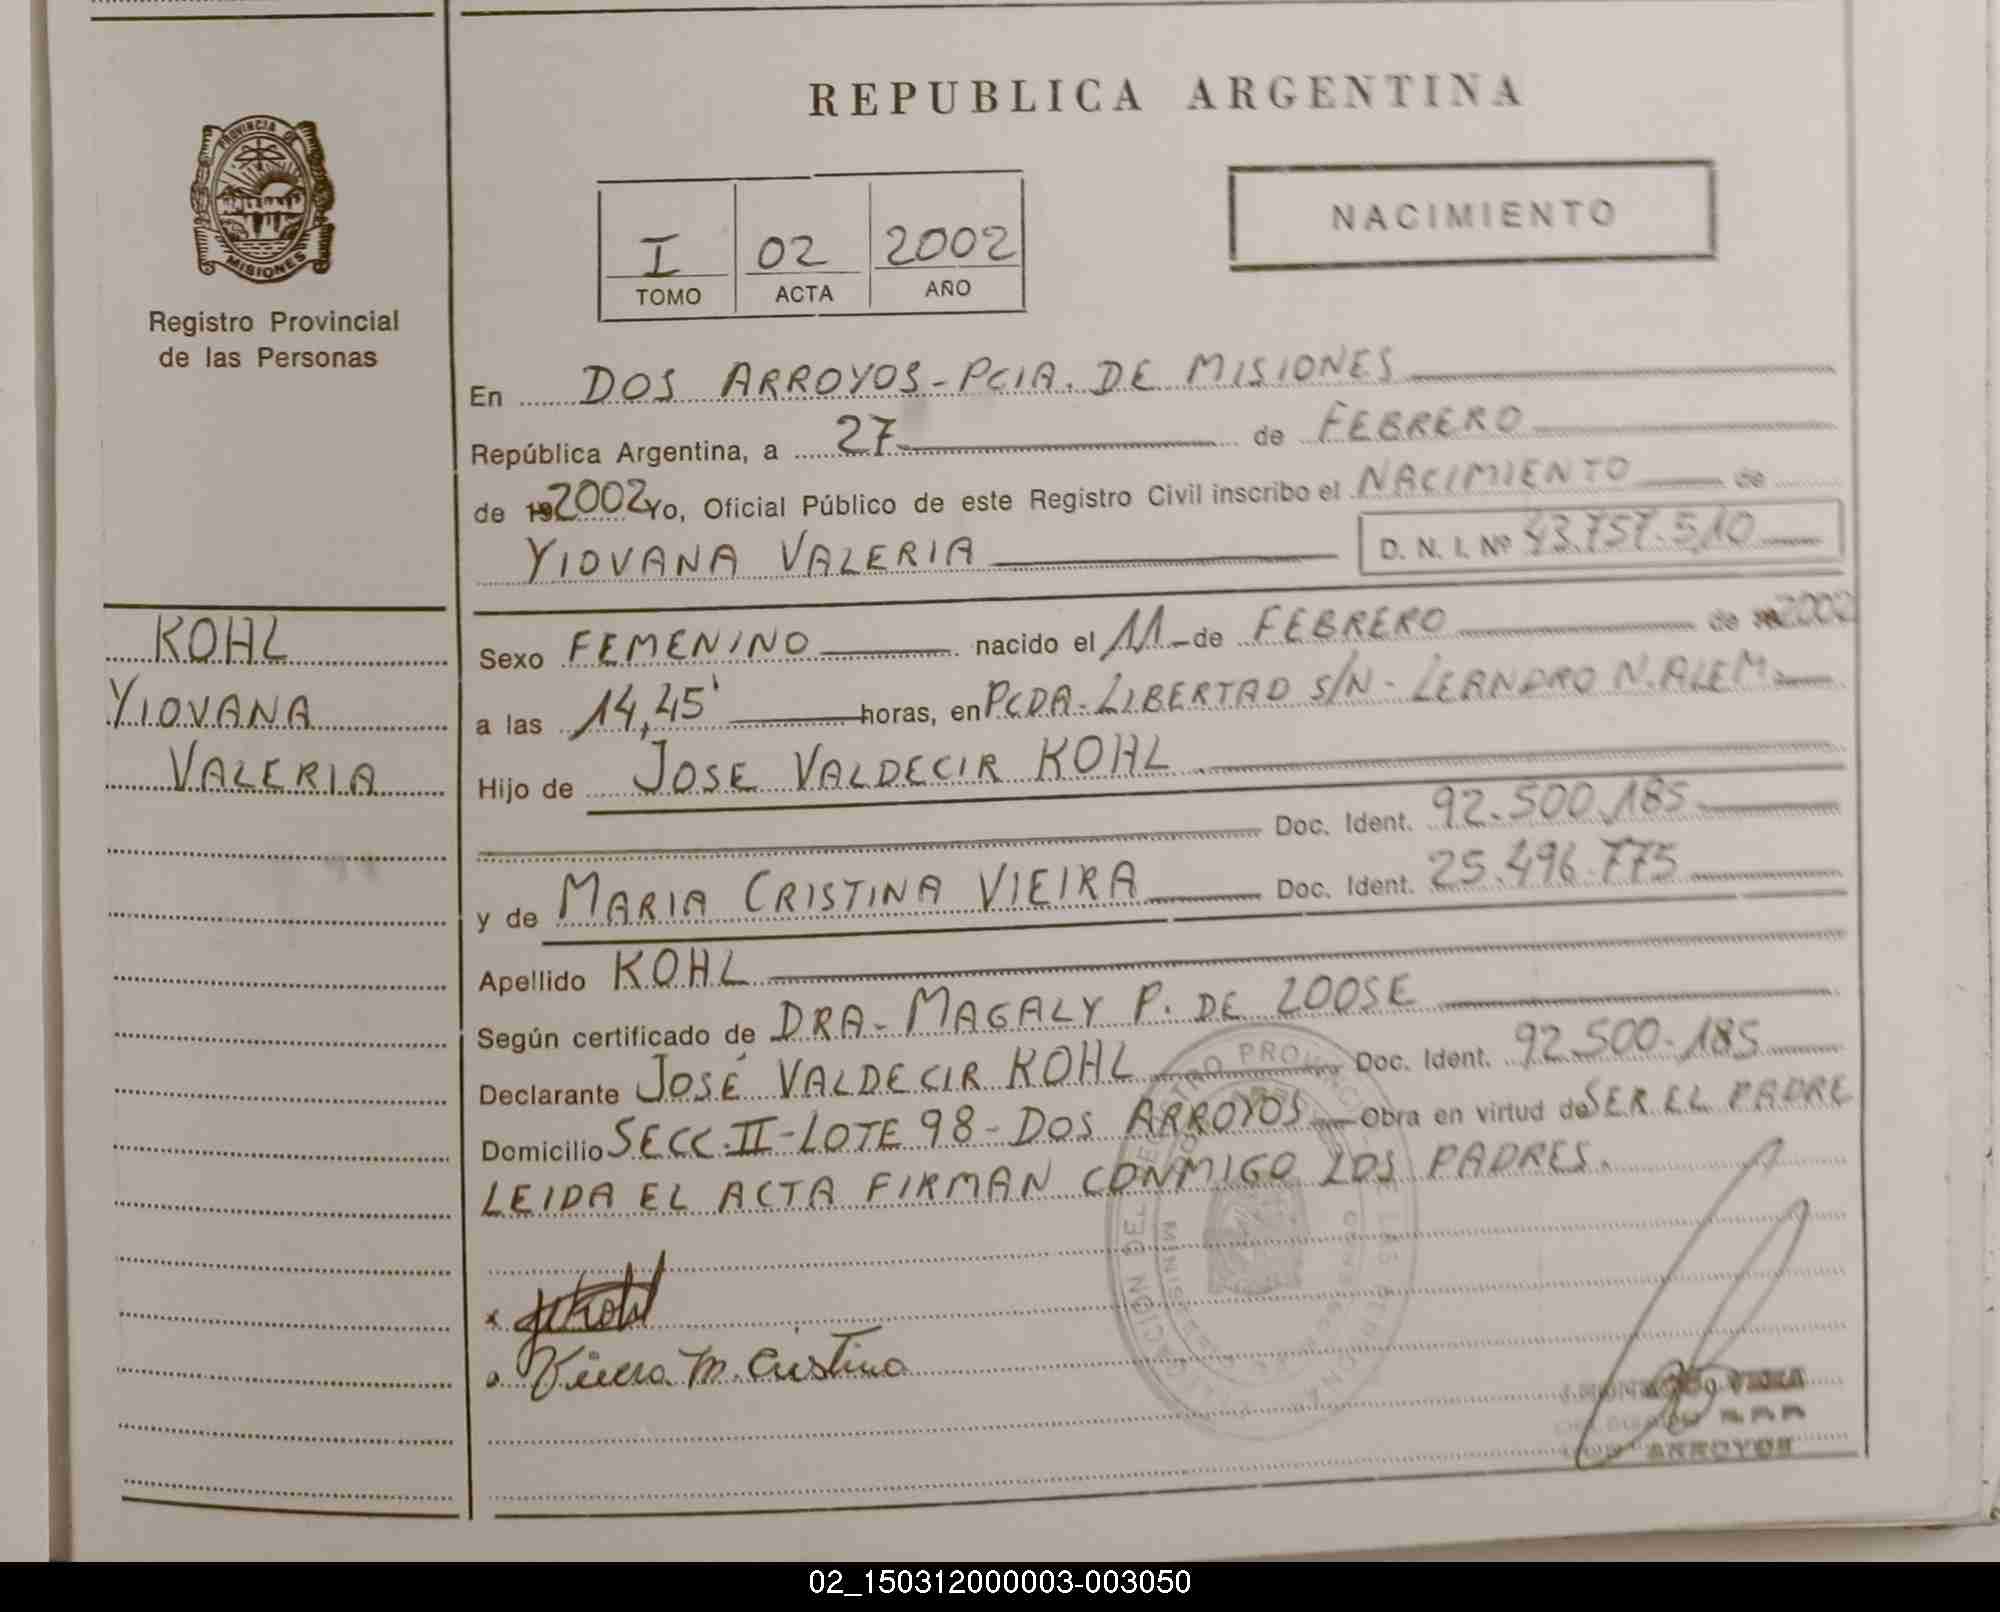 REPUBLICA ARGENTINA
PROVINCIA DE
MISIONES
Registro Provincial
de las Personas
I 02 2002
TOMO ACTA AÑO
NACIMIENTO
En DOS ARROYOS - PCIA. DE MISIONES
República Argentina, a 27 de FEBRERO
de 192002 Yo, Oficial Público de este Registro Civil inscribo el NACIMIENTO de
YIOVANA VALERIA D. N. I. Nº 43.757.510
KOHL
YIOVANA
VALERIA
Sexo FEMENINO nacido el 11 de FEBRERO de 2002
a las 14,45' horas, en PCDA. LIBERTAD S/N - LEANDRO N. ALEM
Hijo de JOSE VALDECIR KOHL
Doc. Ident. 92.500.185
y de MARIA CRISTINA VIEIRA Doc. Ident. 25.496.775
Apellido KOHL
Según certificado de DRA. MAGALY P. DE LOOSE
Declarante JOSÉ VALDECIR KOHL Doc. Ident. 92.500.185
Domicilio SECC. II - LOTE 98 - DOS ARROYOS Obra en virtud de SER EL PADRE
LEIDA EL ACTA FIRMAN CONMIGO LOS PADRES.
x JVKohl
Vieira M. Cristina
ARROYOS
02_150312000003-003050